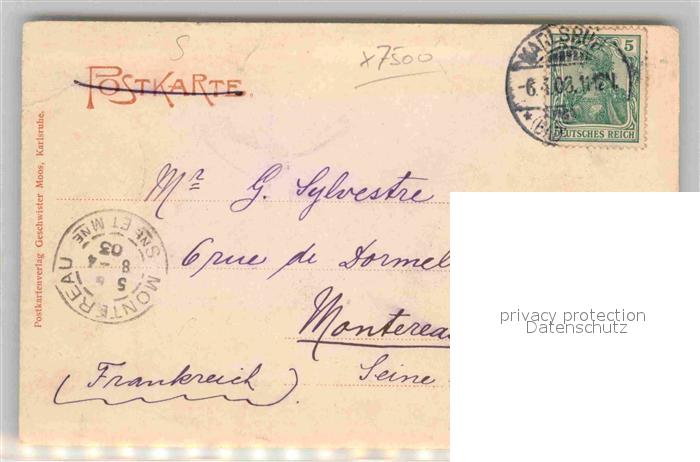 S
x7500
POSTKARTE
KARLSRUHE
-6.4.03.11-12V.
(BADEN)
5
DEUTSCHES REICH
Mr G. Sylvestre
6 rue de Dormel
Montereau
Seine
(Frankreich).
MONTEREAU
5
8 -4
03
SNE ET MNE
Postkartenverlag Geschwister Moos, Karlsruhe.
privacy protection
Datenschutz